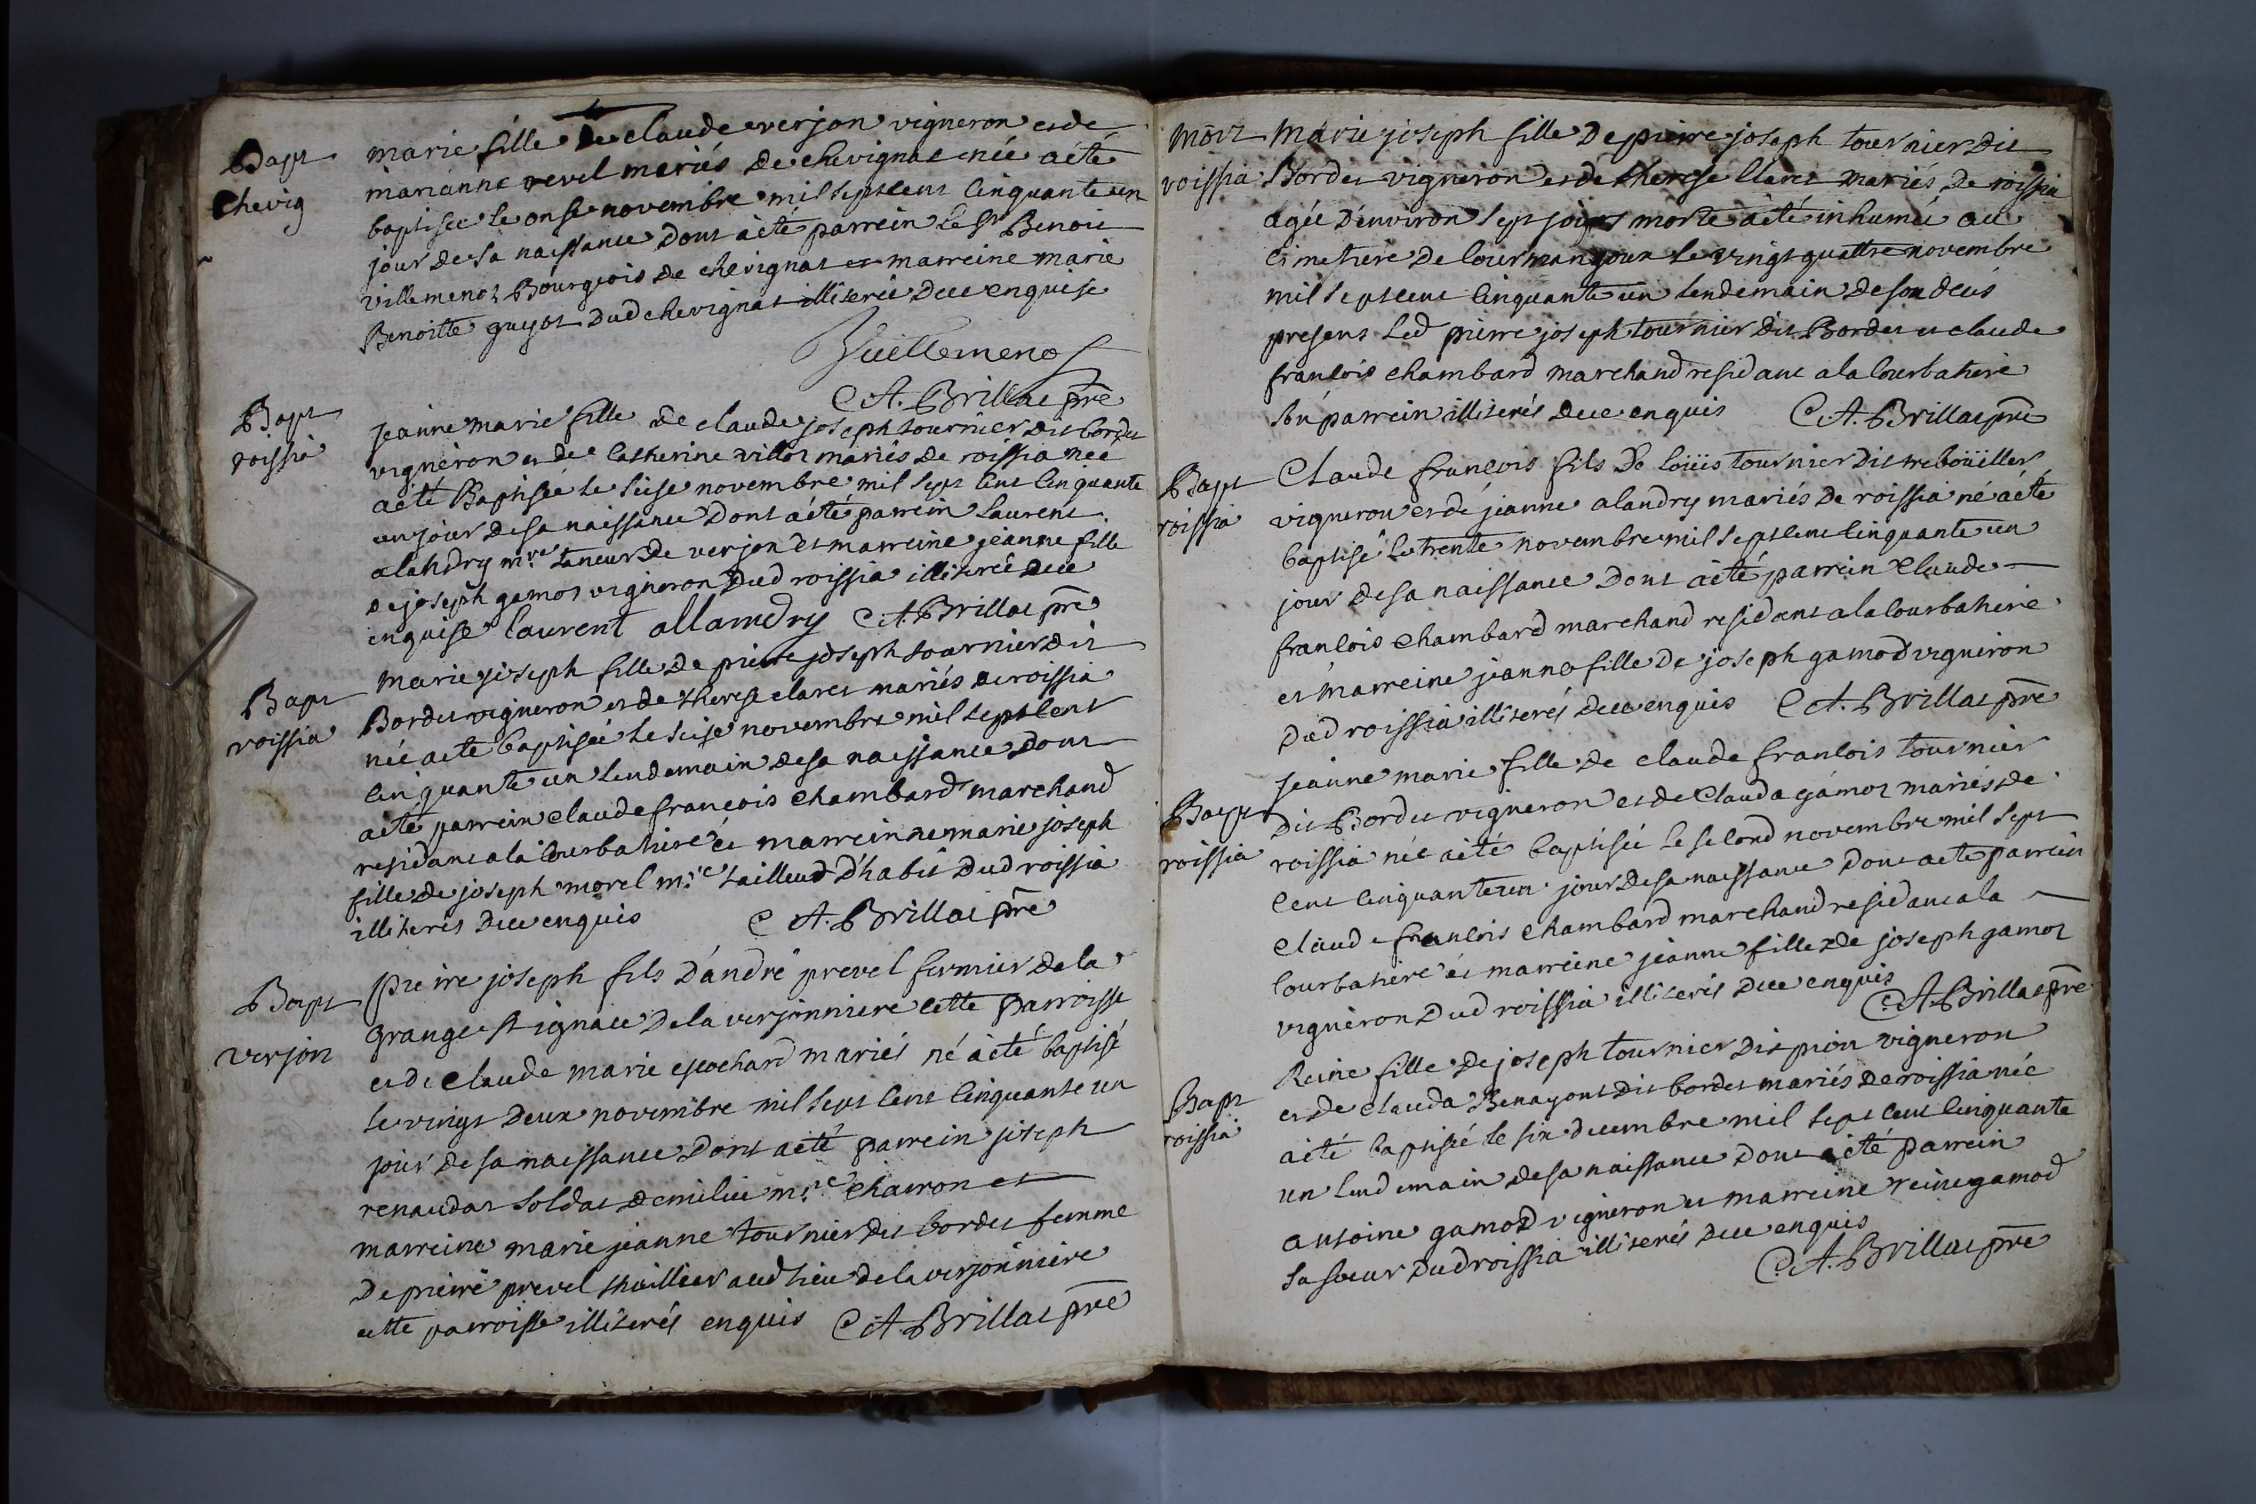 Bapt
Chevig
marie fille de claude verjon vigneron et de
marianne revel mariés de chevignat née a été
baptisée le onse novembre mil sept cent cinquante un
jour de sa naissance dont a été parrein le Sr Benoit
villemenot Bourgeois de chevignat et marreine marie
Benoitte guyot dud chevignat illiterée de ce enquise
Vuillemenot
C A. Brillat pre
Bapt
roissia
jeanne marie fille de claude joseph tournier dit bordet
vigneron et de Catherine villot mariés de roissia née
a été Baptisée le seise novembre mil sept cent cinquante
un jour de sa naissance dont a été parrein laurent
alandry mre taneur de verjon et marreine jeanne fille
de joseph gamot vigneron dud roissia illiterée de ce
enquise laurent allamdry C A. Brillat pre
Bapt
roissia
marie joseph fille de pierre joseph tournier dit
Bordet vigneron et de therese claret mariés de roissia
née a ete baptisée le seise novembre mil sept cent
cinquante un lendemain de sa naissance dont
a été parrein claude françois chambard marchand
residant a la courbatiere et marreinne marie joseph
fille de joseph morel mre tailleud d'habit dud roissia
illiterés de ce enquis C A. Brillat pre
Bapt
verjon
pierre joseph fils d'andré prevel fermier de la
grange st ignace de la verjonniere cette parroisse
et de claude marie escochard mariés né a été baptisé
le vingt deux novembre mil sept cent cinquante un
jour de sa naissance dont a été parrein joseph
renaudat soldat de milice mre charron et
marreine marie jeanne tournier dit bordet femme
de pierre prevel thuillier aud lieu de la verjonniere
cette parroisse illiterés enquis C A. Brillat pre
mort
roissia
marie joseph fille de pierre joseph tournier dit
Bordet vigneron et de therese claret mariés de roissia
agée d'environ sept jours morte a été inhumée au
cimetiere de courmangoux le vingt quattre novembre
mil sept cent cinquante un lendemain de son decés
presens led pierre joseph tournier dit Bordet et claude
francois chambard marchand residant a la courbatiere
son parrein illiterés de ce enquis C A. Brillat pre
Bapt
roissia
Claude francois fils de loüis tournier dit treboüiller
vigneron et de jeanne alandry mariés de roissia né a été
baptisé le trente novembre mil sept cent cinquante un
jour de sa naissance dont a été parrein claude
francois chambard marchand residant a la courbatiere
et marreine jeanne fille de joseph gamod vigneron
dud roissia illiterés de ce enquis C A. Brillat pre
Bapt
roissia
jeanne marie fille de claude francois tournier
dit Bordet vigneron et de Clauda gamot mariés de
roissia née a été baptisée le second novembre mil sept
cent cinquante un jour de sa naissance dont a ete parrein
claude francois chambard marchand residant a la
courbatiere et marreine jeanne fille de joseph gamot
vigneron dud roissia illiterés de ce enquis
C A. Brillat pre
Bapt
roissia
Reine fille de joseph tournier dit pion vigneron
et de clauda Benayont dit bordet mariés de roissia née
a été baptisée le six decembre mil sept cent cinquante
un lendemain de sa naissance dont a été parrein
antoine gamod vigneron et marreine reine gamod
sa soeur dud roissia illiterés de ce enquis
C A. Brillat pre